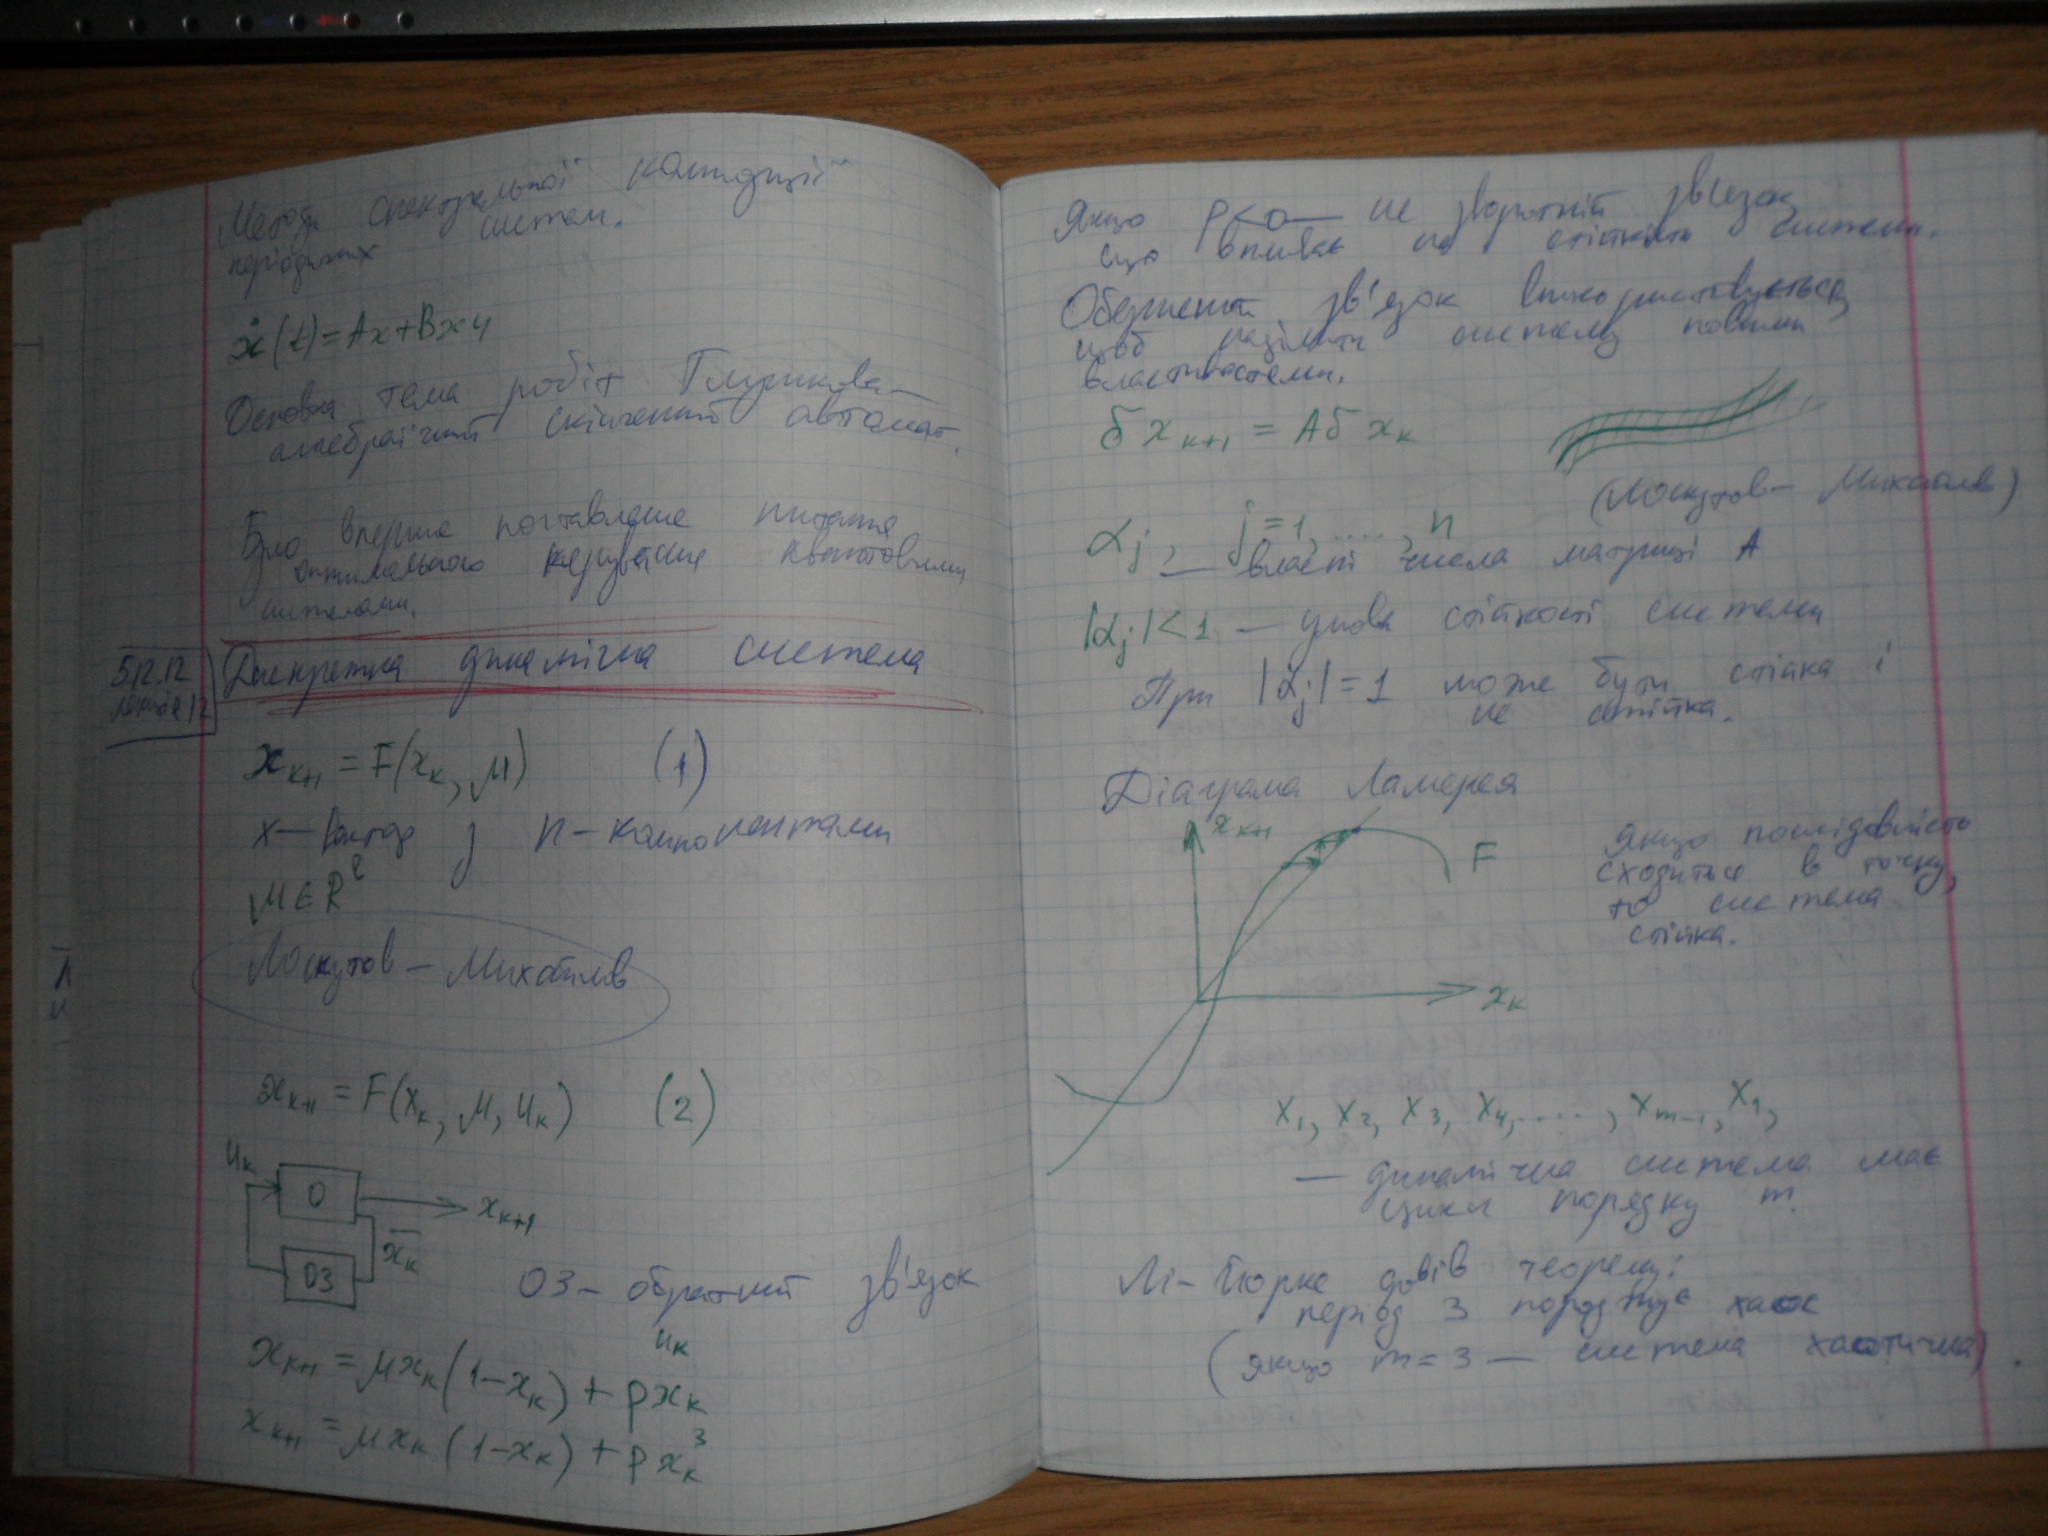 Методи спектральної
періодичних систем.
ẋ(t)=Ax+Bxu
Основна тема робіт Глушкова —
алгебраїчний скінченний автомат.
Було вперше поставлене питання
оптимального керування квантовими
системами.
5.12.12
лекція 12
Дискретна динамічна система
x_{k+1} = F(x_k, μ) (1)
x — вектор з n-компонентами
μ ∈ R^l
Лоскутов — Михайлов
x_{k+1} = F(x_k, μ, u_k) (2)
u_k
O
x_{k+1}
x̄_k
ОЗ
ОЗ — обратний зв'язок
u_k
x_{k+1} = μx_k(1-x_k) + px_k
x_{k+1} = μx_k(1-x_k) + px_k^3
Якщо p<0 — це зворотній зв'язок,
що впливає на стійкість системи.
зв'язок використовується,
щоб наділити систему новими
властивостями.
δx_{k+1} = Aδx_k
(Лоскутов — Михайлов)
α_j, j=1, ...., n
— власні числа матриці A
|α_j|<1 — умова стійкості системи
При |α_j|=1 може бути стійка і
не стійка.
Діаграма Ламерея
x_{k+1}
F
x_k
Якщо послідовність
сходиться в точку,
то система
стійка.
x_1, x_2, x_3, x_4, ....., x_{m-1}, x_1,
— динамічна система має
цикл порядку m.
Лі-Йорке довів теорему:
період 3 породжує хаос
(якщо m=3 — система хаотична).